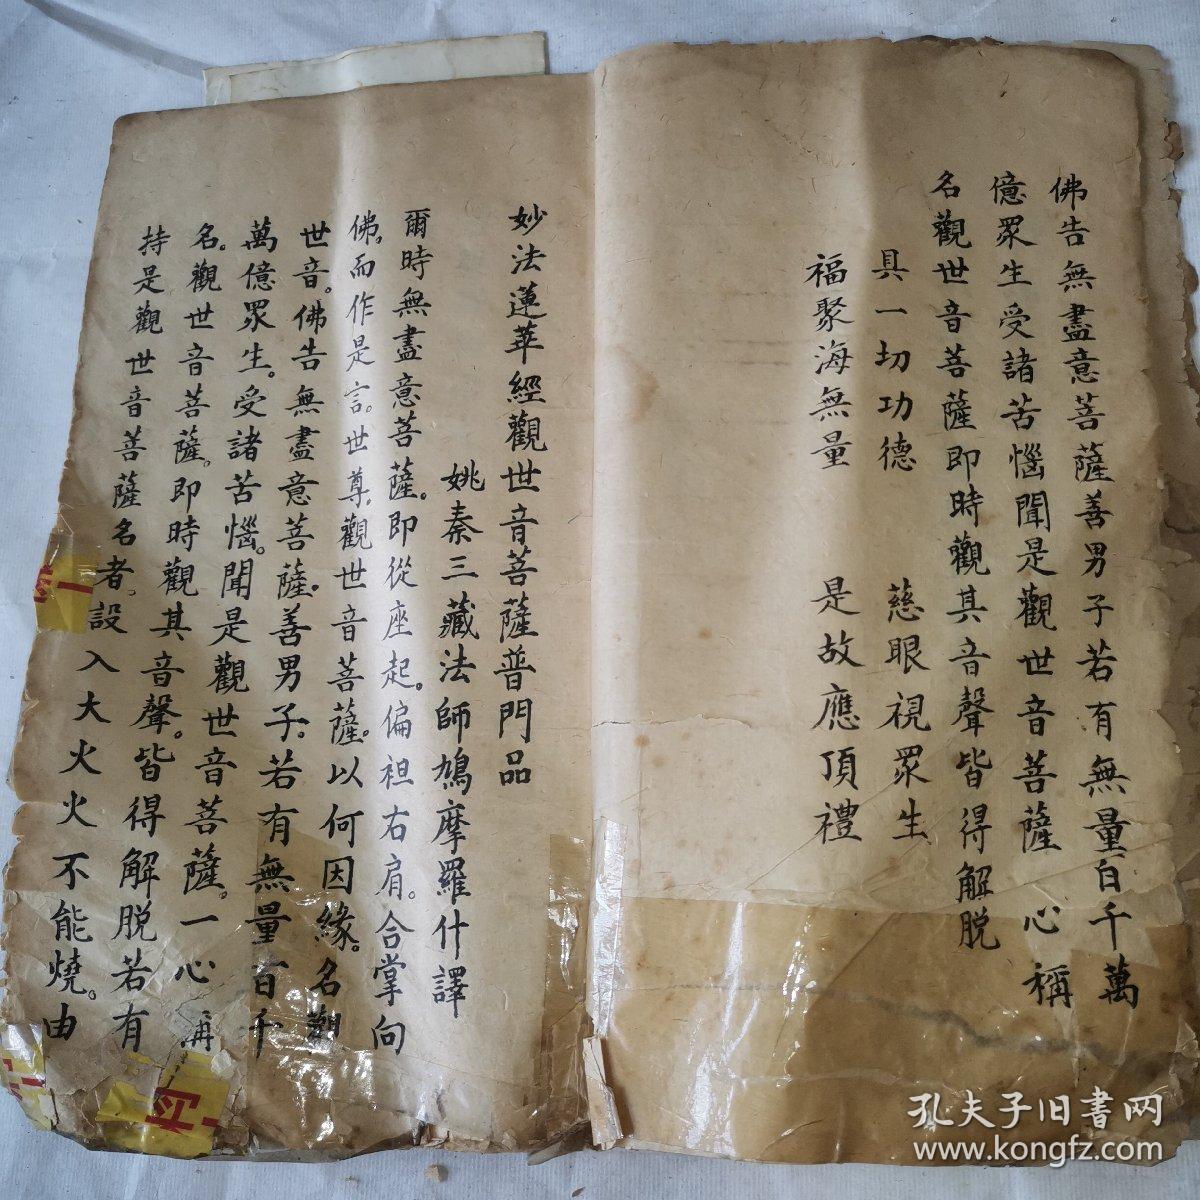 佛告無盡意菩薩善男子若有無量百千萬
億眾生受諸苦惱聞是觀世音菩薩心稱
名觀世音菩薩即時觀其音聲皆得解脫
具一切功德 慈眼視眾生
福聚海無量 是故應頂禮
妙法蓮華經觀世音菩薩普門品
姚秦三藏法師鳩摩羅什譯
爾時無盡意菩薩。即從座起。偏袒右肩。合掌向
佛。而作是言。世尊。觀世音菩薩。以何因緣。名觀
世音。佛告無盡意菩薩。善男子。若有無量百千
萬億眾生。受諸苦惱。聞是觀世音菩薩。一心稱
名。觀世音菩薩。即時觀其音聲。皆得解脫若有
持是觀世音菩薩名者。設入大火火不能燒。由
孔夫子旧書网
www.kongfz.com